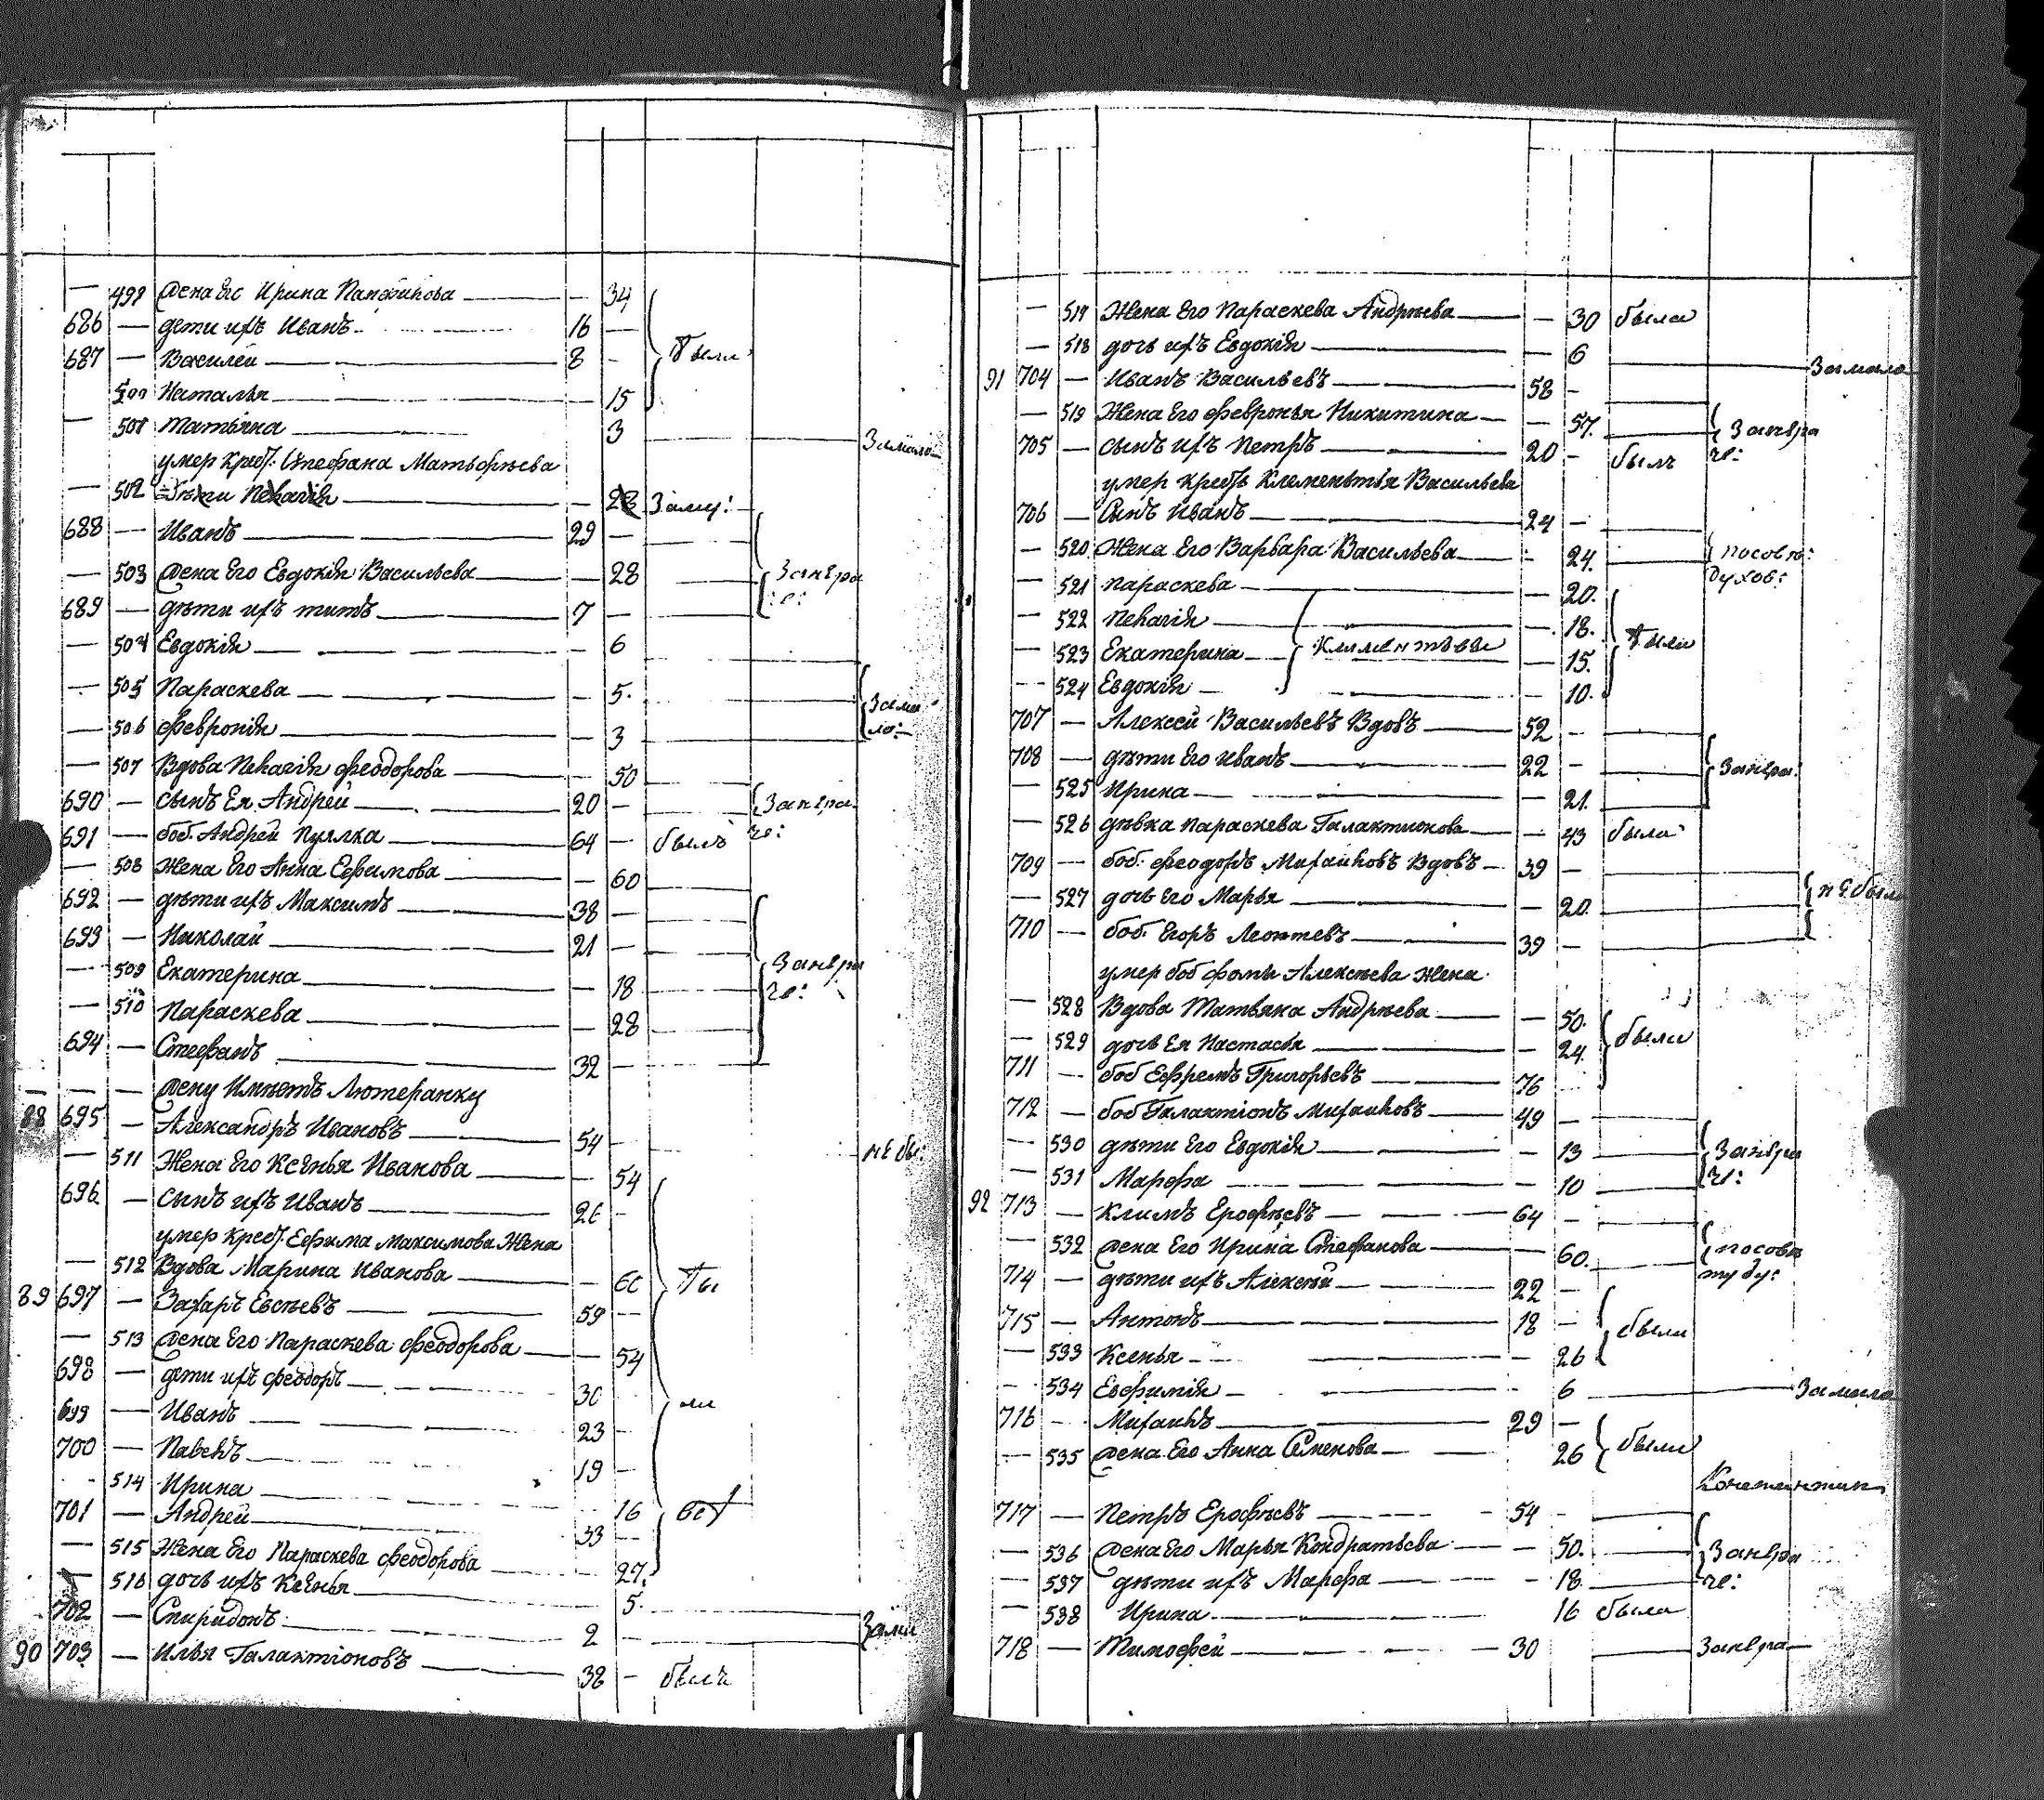 — 499 жена Его Ирина Панфилова — — 34
686 — дети ихъ Иванъ — 16 — были
687 — Василей — 8 —
500 Наталья — — 15
— 501 Татьяна — 3 — Замало
умер крест: Стефана Матвѣева
— 502 дѣти Пелагія — — 28 Заму:
688 — Иванъ — 29 —
— 503 жена Его Евдокія Васильева — — 28 —
689 — дѣти ихъ титъ — 7 —
— 504 Евдокія — — 6
— 505 Параскева — — 5.
— 506 февронія — — 3
— 507 Вдова Пелагія феодорова — — 50 —
690 — сынъ Ея Андрей — 20 —
691 — боб. Андрей — 64 — былъ
— 508 Жена Его Анна Ефимова — — 60
692 — дѣти ихъ Максимъ — 38 —
693 — Николай — 21 —
— 509 Екатерина — — 18
— 510 Параскева — — 28
694 — Стефанъ — 32 —
— — — жену Имѣетъ Лютеранку
88 695 — Александръ Ивановъ — 54 — не бы:
— 511 Жена Его Ксенья Иванова — — 54
696 — сынъ ихъ Иванъ — 26 —
умер крест. Ефима Максимова Жена
— 512 Вдова Марина Иванова — — 60 бы
89 697 — Захаръ Евсѣевъ — 59 —
— 513 жена Его Параскева феодорова — — 54
698 — дети ихъ феодоръ — 30
699 — Иванъ — 23 — ли
700 — Павелъ — 19 —
514 Ирина — 16
701 — Андрей — 33 —
— 515 Жена Его Параскева феодорова — — 27.
— 516 дочь ихъ Ксенья — 5.
702 — Спиридонъ — 2 —
90 703 — Илья Галактіоновъ — 38 — былъ
— 518 дочь ихъ Евдокія — — 6 — Замало
91 704 — Иванъ Васильевъ — 58 —
— 519 Жена Его февронья Никитина — — 57.
705 — сынъ ихъ Петръ — 20 — былъ
умер крест Клементья Васильева
706 — Сынъ Иванъ — 24 —
— 520 Жена Его Варвара Васильева — 24.
— 521 Параскева — — 20.
— 522 Пелагія — — 18. были
— 523 Екатерина — Клементьевы — 15.
— 524 Евдокія — — 10.
707 — Алексей Васильевъ Вдовъ — 52 —
708 — дѣти Его Иванъ — 22 —
— 525 Ирина — — 21.
— 526 дѣвка Параскева Галактионова — — 43 была
709 — боб. феодоръ Михайловъ Вдовъ — 39 —
— 527 дочь Его Марья — — 20. не были
710 — боб. Егоръ Леонтевъ — 39 —
умер боб фомы Алексѣева Жена
— 528 Вдова Татьяна Андрѣева — — 50.
— 529 дочь Ея Настасья — — 24. были
711 — боб Ефремъ Григорьевъ — 76
712 — боб Галактіонъ Михайловъ — 49 —
— 530 дѣти Его Евдокія — — 13
— 531 Марфа — — 10
92 713 — Климъ Ерофѣевъ — 64 —
— 532 жена Его Ирина Стефанова — — 60.
714 — дѣти ихъ Алексѣй — 22 —
715 — Антонъ — 18 — были
— 533 Ксенья — — 26
— 534 Евфимія — 6 — Замало
716 — Михаилъ — 29 —
— 535 жена Его Анна Семенова — 26 были
717 — Петръ Ерофѣевъ — 54 —
— 536 жена Его Марья Кондратьева — — 50.
— 537 дѣти ихъ Марфа — — 18.
— 538 Ирина — 16 была
718 — Тимофей — 30